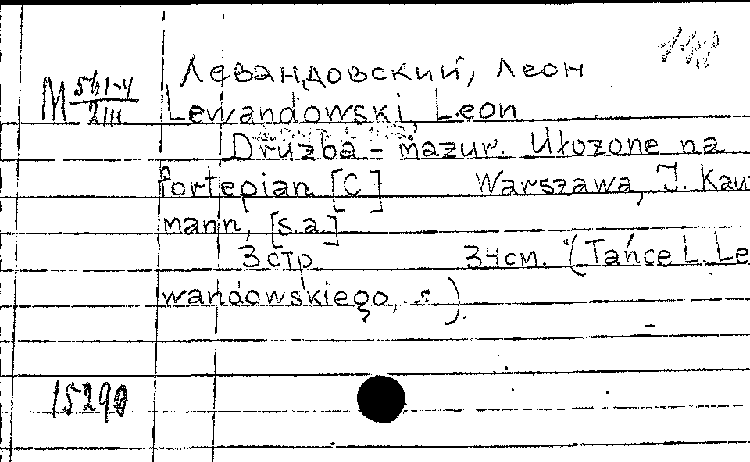 Левандовский, Леон
М 561-4/2III
Lewandowski, Leon
Drużba - mazur. Ułozone na
fortepian [C] Warszawa, J. Kauf
mann, [s.a.]
3 стр. 34 см. (Tańce L. Le
wandowskiego, ).
15290